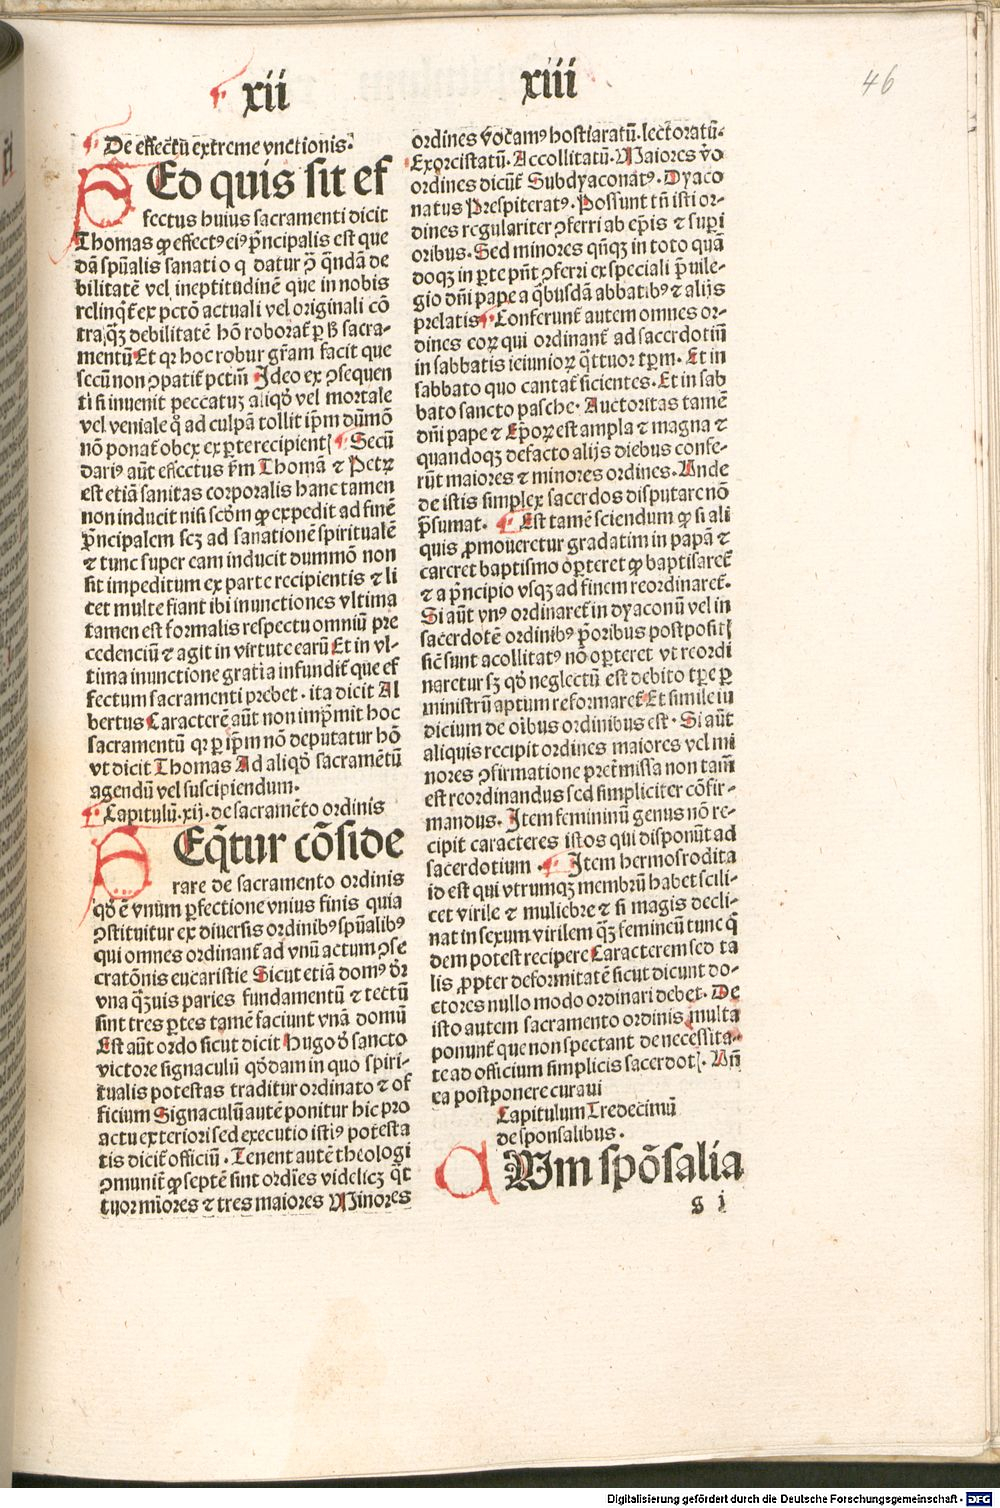 xii
xiii
46
De effectu extreme vnctionis.
SEd quis sit ef
fectus huius sacramenti dicit
Thomas ꝙ effectꝰ eiꝰ p̃ncipalis est que
dã spũalis sanatio q datur ꝯ̃ q̃ndã de
bilitatẽ vel ineptitudinẽ que in nobis
relinqt̃ ex pctõ actuali vel originali cõ
tra qz̃ debilitatẽ hõ roborat̃ ꝑ ß sacra-
mentũ Et qr hoc robur gr̃am facit que
secũ non ꝯpatit̃ pctm̃ Ideo ex ꝯsequen
ti si inuenit peccatuz aliqđ vel mortale
vel veniale q̊ ad culpã tollit ip̃m dũmõ
nõ ponat̃ obex ex ꝑte recipientꝭ Secũ
dariꝰ aũt effectus ẜm Thomã ⁊ Petrꝝ
est etiã sanitas corporalis hanc tamen
non inducit nisi scđm ꝙ expedit ad finẽ
p̃ncipalem scꝫ ad sanationẽ spiritualẽ
⁊ tunc super eam inducit dummõ non
sit impeditum ex parte recipientis ⁊ li
cet multe fiant ibi inunctiones vltima
tamen est formalis respectu omniũ pre
cedenciũ ⁊ agit in virtute earũ Et in vl-
tima inunctione gratia infundit̃ que ef
fectum sacramenti prebet. ita dicit Al
bertus Caracterẽ aũt non imp̃mit hoc
sacramentũ qr ꝑ ip̃m nõ deputatur hõ
vt dicit Thomas Ad aliqđ sacramẽtũ
agendũ vel suscipiendum.
Capitulũ.xij. de sacramẽto ordinis
SEq̃tur cõside
rare de sacramento ordinis
qđ ẽ vnum ꝑfectione vnius finis quia
ꝯstituitur ex diuersis ordinibꝰ spũalibꝰ
qui omnes ordinant̃ ad vnũ actum ꝯse
cratõnis eucaristie Sicut etiã domꝰ dr̃
vna qz̃uis paries fundamentũ ⁊ tectũ
sint tres ꝑtes tamẽ faciunt vnã domũ
Est aũt ordo sicut dicit Hugo đ sancto
victore signaculũ qđdam in quo spiri-
tualis potestas traditur ordinato ⁊ of
ficium Signaculũ autẽ ponitur hic pro
actu exteriori sed executio istiꝰ potesta
tis dicit̃ officiũ. Tenent autẽ theologi
ꝯmunit̃ ꝙ septẽ sint ordĩes videlicꝫ q̃t
tuor mĩores ⁊ tres maiores Minores
ordines vocamꝰ hostiaratũ. lectoratũ.
Exorcistatũ. Accollitatũ. Maiores v̊o
ordines dicũt̃ Subdyaconatꝰ. Dyaco
natus Prespiteratꝰ. Possunt tñ isti or-
dines regulariter ꝯferri ab ep̃is ⁊ supi
oribus. Sed minores qñqꝫ in toto quã
doqꝫ in ꝑte pñt ꝯferri ex speciali p̃uile-
gio dñi pape a qb̃usdã abbatibꝰ ⁊ alijs
prelatis Conferunt̃ autem omnes or-
dines eoꝝ qui ordinant̃ ad sacerdotiũ
in sabbatis ieiunioꝝ q̃ttuor tꝑm. Et in
sabbato quo cantat̃ sicientes. Et in sab
bato sancto pasche. Auctoritas tamẽ
dñi pape ⁊ Ep̃oꝝ est ampla ⁊ magna ⁊
quandoqꝫ defacto alijs diebus confe-
rũt maiores ⁊ minores ordines. Unde
de istis simplex sacerdos disputare nõ
p̃sumat. Est tamẽ sciendum ꝙ si ali
quis ꝓmoueretur gradatim in papã ⁊
careret baptismo oꝑteret ꝙ baptisaret̃
⁊ a p̃ncipio vsqꝫ ad finem reordinaret̃.
Si aũt vnꝰ ordinaret̃ in dyaconũ vel in
sacerdotẽ ordinibꝰ p̃oribus postpositꝭ
sic̃ sunt acollitatꝰ nõ oꝑteret vt reordi
naretur sꝫ qđ neglectũ est debito tꝑe ꝑ
ministrũ aptum reformaret̃ Et simile iu
dicium de oĩbus ordinibus est. Si aũt
aliquis recipit ordines maiores vel mi
nores ꝯfirmatione pret̃missa non tam̃
est reordinandus sed simpliciter cõfir-
mandus. Item femininũ genus nõ re-
cipit caracteres istos qui disponũt ad
sacerdotium. Item hermofrodita
id est qui vtrumqꝫ membrũ habet scili-
cet virile ⁊ muliebre ⁊ si magis decli-
nat in sexum virilem qz̃ femineũ tunc q̃
dem potest recipere Caracterem sed ta
lis ꝓpter deformitatẽ sicut dicunt do-
ctores nullo modo ordinari debet. De
isto autem sacramento ordinis multa
ponunt̃ que non spectant de necessita-
te ad officium simplicis sacerdotꝭ. Uñ
ea postponere curaui
Capitulum Tredecimũ
de sponsalibus.
CUm spõsalia
g i
Digitalisierung gefördert durch die Deutsche Forschungsgemeinschaft - DFG